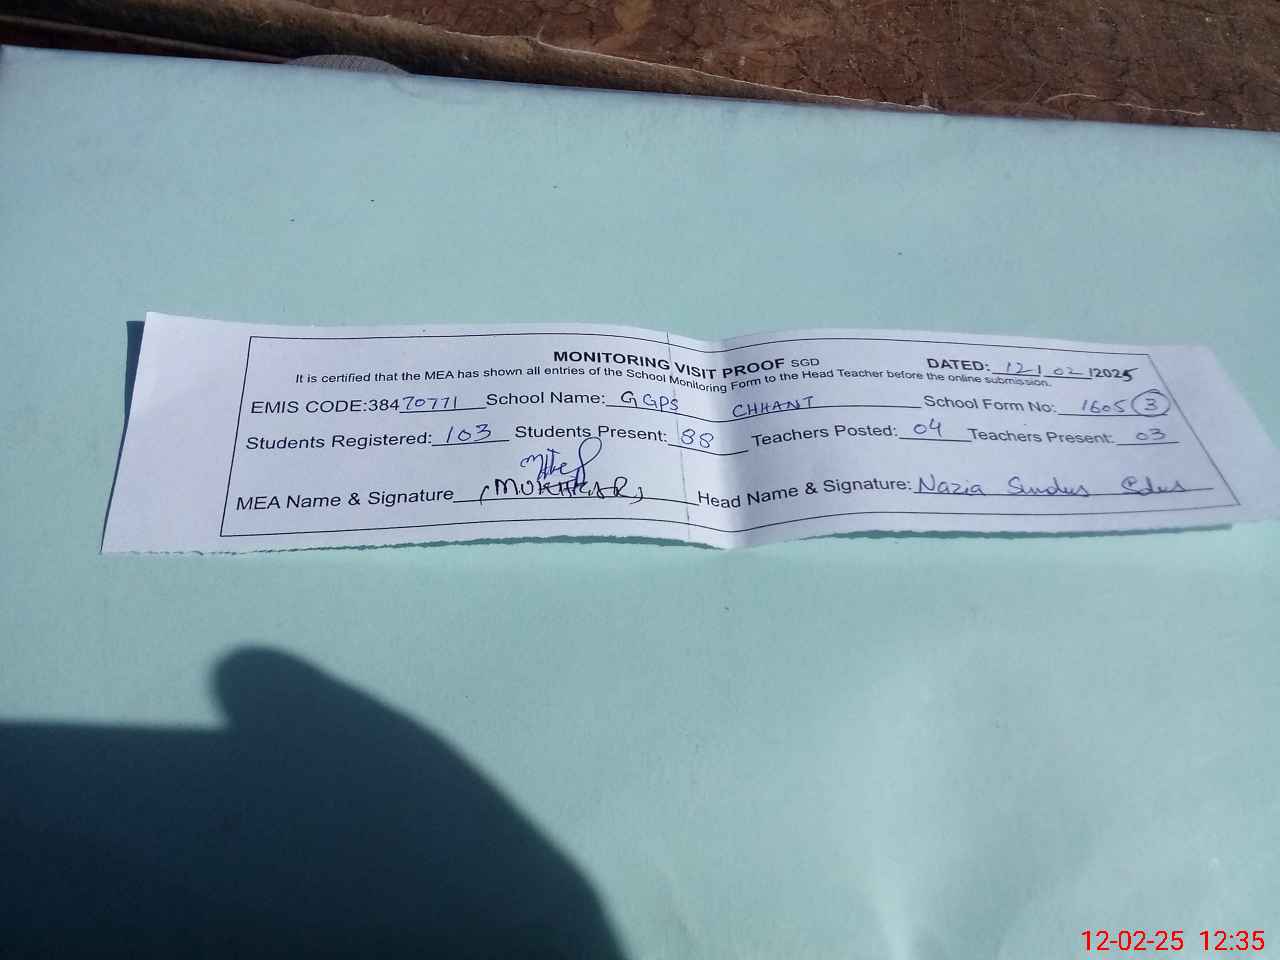 MONITORING VISIT PROOF SGD DATED: 12/02/2025
It is certified that the MEA has shown all entries of the School Monitoring Form to the Head Teacher before the online submission.
EMIS CODE:38470771 School Name: GGPS CHHANT School Form No: 1605 3
Students Registered: 103 Students Present: 88 Teachers Posted: 04 Teachers Present: 03
MEA Name & Signature (MUKHTAR) Head Name & Signature: Nazia Sundus
12-02-25 12:35